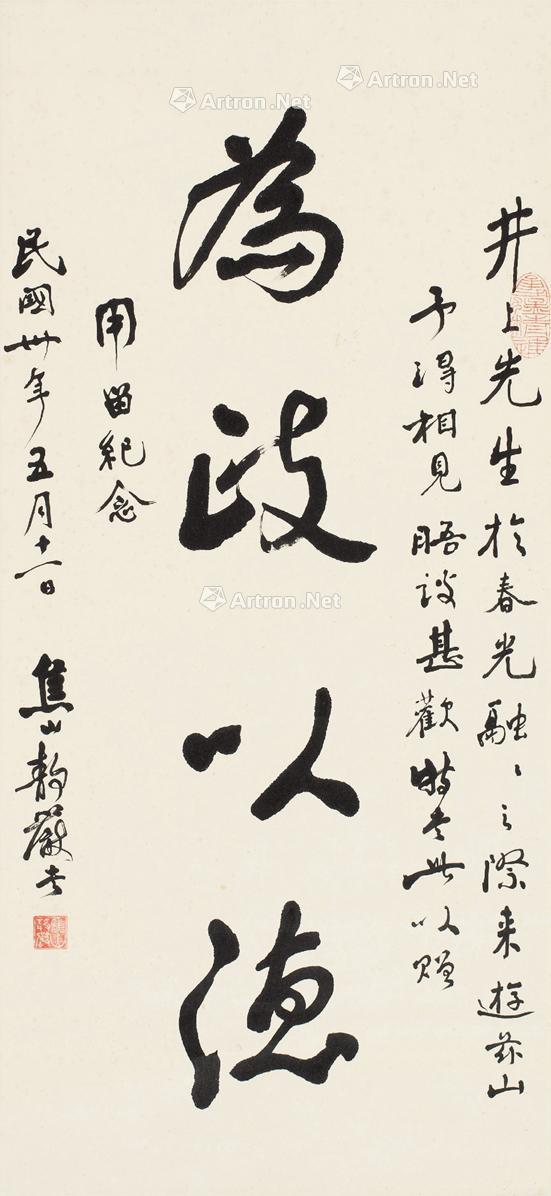 井上先生於春光融〻之際来遊茲山
予得相見晤談甚歡特書此以贈
為政以德
用留紀念
民國卅年五月十一日 焦山靜嚴書
Artron.Net
Artron.Net
Artron.Net